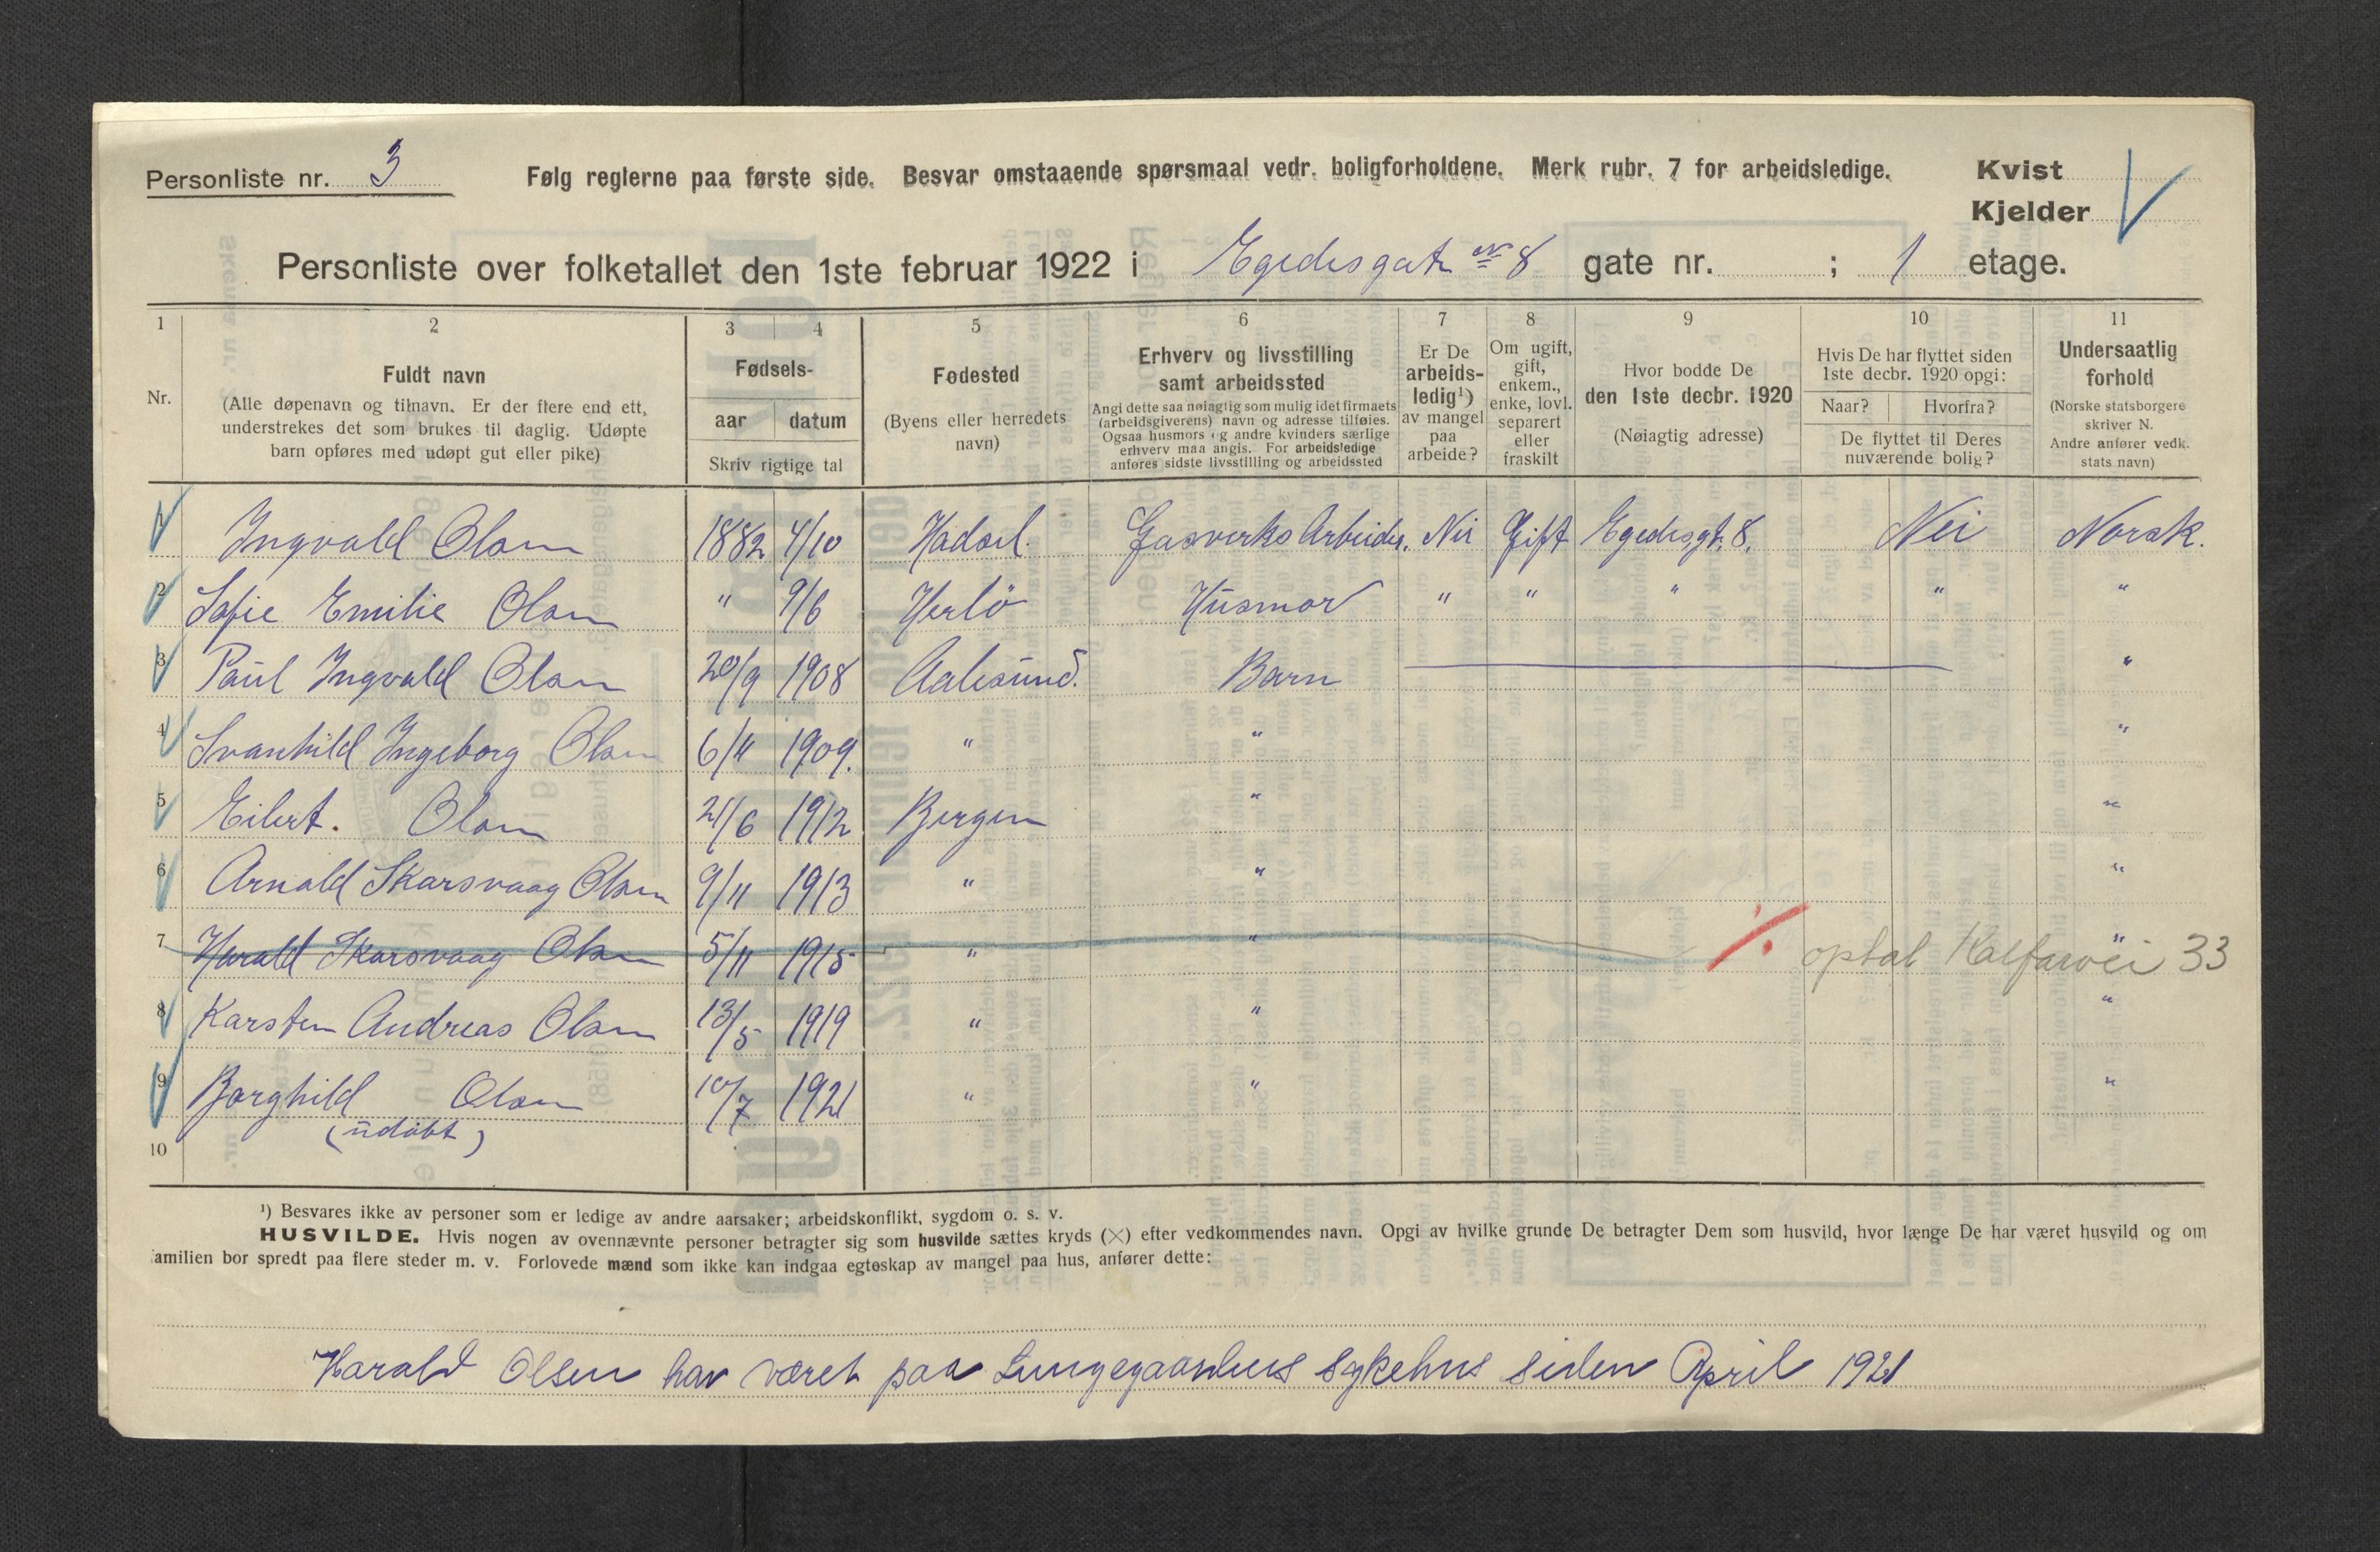 Personliste nr. 3
Følg reglerne paa første side. Besvar omstaaende spørsmaal vedr. boligforholdene. Merk rubr. 7 for arbeidsledige.
Kvist
Kjelder
Personliste over folketallet den 1ste februar 1922 i Egedesgate nr 8 gate nr. ; 1 etage.
1 2 3 4 5 6 7 8 9 10 11
Nr.
Fuldt navn
(Alle døpenavn og tilnavn. Er der flere end ett,
understrekes det som brukes til daglig. Udøpte
barn opføres med udøpt gut eller pike)
Fødsels-
aar datum
Skriv rigtige tal
Fødested
(Byens eller herredets
navn)
Erhverv og livsstilling
samt arbeidssted
Angi dette saa nøiagtig som mulig idet firmaets
(arbeidsgiverens) navn og adresse tilføies.
Ogsaa husmors og andre kvinders særlige
erhverv maa angis. For arbeidsledige
anføres sidste livsstilling og arbeidssted
Er De
arbeids-
ledig¹)
av mangel
paa
arbeide?
Om ugift,
gift,
enkem.,
enke, lovl.
separert
eller
fraskilt
Hvor bodde De
den 1ste decbr. 1920
(Nøiagtig adresse)
Hvis De har flyttet siden
1ste decbr. 1920 opgi:
Naar? Hvorfra?
De flyttet til Deres
nuværende bolig?
Undersaatlig
forhold
(Norske statsborgere
skriver N.
Andre anfører vedk.
stats navn)
1 Ingvald Olsen 1882 4/10 Hadsel. Gasverks Arbeider. Nei Gift Egedesgt. 8. Nei Norsk.
2 Sofie Emilie Olsen " 9/6 Herlö Husmor " " " " "
3 Paul Ingvald Olsen 20/9 1908 Aalesund. Barn "
4 Svanhild Ingeborg Olsen 6/11 1909. " " "
5 Eilert. Olsen 21/6 1912 Bergen " "
6 Arnold Skarsvaag Olsen 9/11 1913 " " "
7 Harald Skarsvaag Olsen 5/11 1915 " " " ./. optal Kalfarvei 33
8 Karsten Andreas Olsen 13/5 1919 " " "
9 Borghild Olsen 10/7 1921 " " "
(udöbt)
10
¹) Besvares ikke av personer som er ledige av andre aarsaker; arbeidskonflikt, sygdom o. s. v.
HUSVILDE. Hvis nogen av ovennævnte personer betragter sig som husvilde sættes kryds (×) efter vedkommendes navn. Opgi av hvilke grunde De betragter Dem som husvild, hvor længe De har været husvild og om
amilien bor spredt paa flere steder m. v. Forlovede mænd som ikke kan indgaa egteskap av mangel paa hus, anfører dette:
Harald Olsen har været paa Lungegaardens sykehus siden April 1921